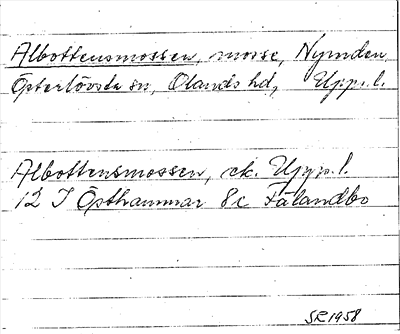 Albottensmossen, mosse, Nymden,
Österlövsta sn, Olands hd, Uppl.
Albottensmossen, ek. Uppl.
12 I Östhammar 8c Fälandbo
SR 1958